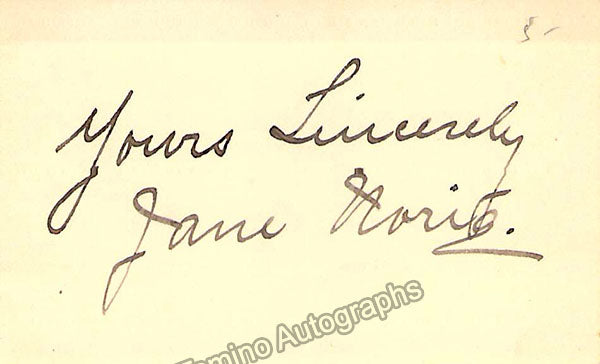 5-
Yours Sincerely
Jane Noria.
Tamino Autographs